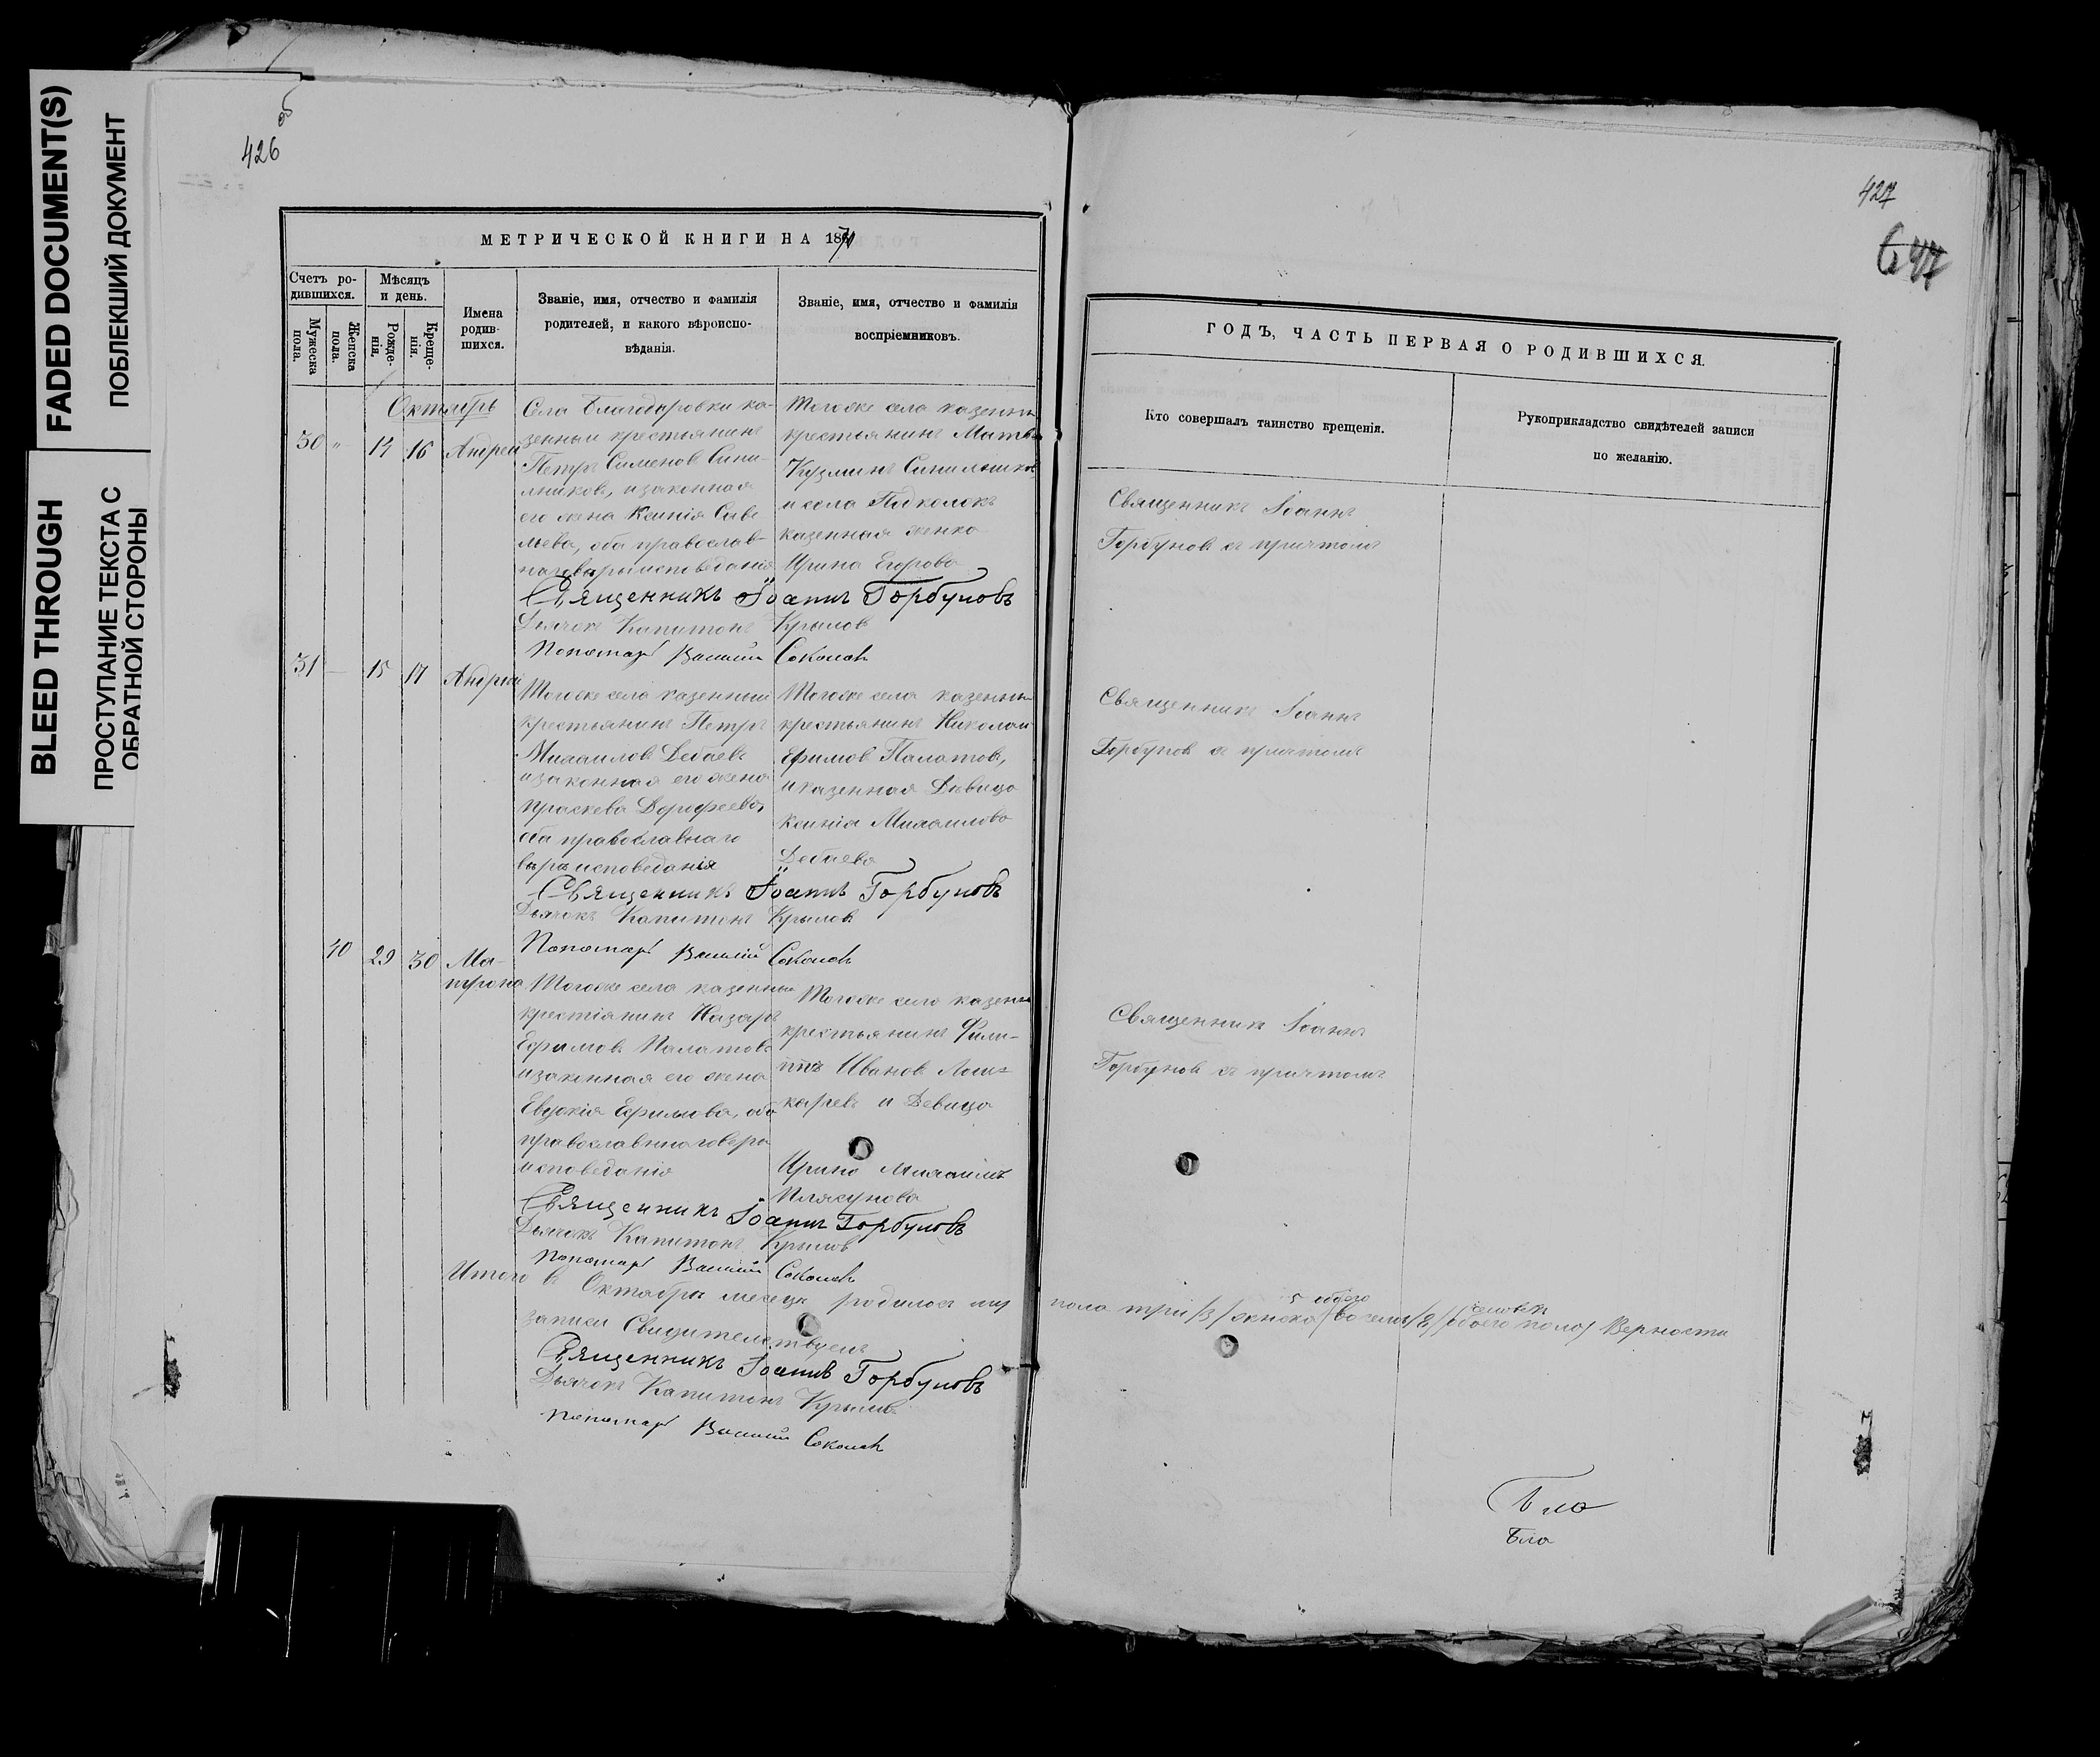 FADED DOCUMENT(S)
ПОБЛЕКШИЙ ДОКУМЕНТ
BLEED THROUGH
ПРОСТУПАНИЕ ТЕКСТА С
ОБРАТНОЙ СТОРОНЫ
426
МЕТРИЧЕСКОЙ КНИГИ НА 1871
Счетъ ро-
дившихся.
Мужеска
пола.
Женска
пола.
Мѣсяцъ
и день.
Рожде-
нія.
Креще-
нія.
Имена
родив-
шихся.
Званіе, имя, отчество и фамилія
родителей, и какого вѣроиспо-
вѣданія.
Званіе, имя, отчество и фамилія
воспріемниковъ.
Октябрь
30 " 14 16 Андрей
Села Благодаровки ка-
зенный крестьянинъ
Петръ Сименовъ Сини-
льниковъ, и законная
его жена Ксенія Саве
льева, оба православ-
наго вѣры исповеданія
Тогоже села казенный
крестьянинъ Матвѣ
Кузминъ Синильников
и села Подколокъ
казенная женка
Ирина Егорова
Священникъ Іоаннъ Горбуновъ
Дьячокъ Капитонъ Крыловъ
Пономарь Василій Соколовъ
31 — 15 17 Андрей
Тогоже села казенный
крестьянинъ Петръ
Михаиловъ Дебаевъ
и законная его жена
Праскева Дорофеева,
оба православнаго
вѣры исповеданія
Тогоже села казенный
крестьянинъ Николай
Ефимов Палатовъ,
и казенная Дѣвица
Ксенія Михаилова
Дебаева
Священникъ Іоаннъ Горбуновъ
Дьячокъ Капитонъ Крыловъ
Пономарь Василій Соколовъ
40 29 30 Ма-
трона
Тогоже села казенный
крестіянинъ Назаръ
Ефимовъ Палатовъ
и законная его жена
Евдокія Ефимова, оба
православнаго вѣры
исповеданія
Тогоже села казенный
крестьянинъ Фили-
ппъ Иванов Лош-
каревъ и Девица
Ирина Михаилъ
Плясунова
Священникъ Іоаннъ Горбуновъ
Дьячокъ Капитонъ Крыловъ
Пономарь Василій Соколовъ
Итого въ Октябрѣ месецѣ родилось му
записи Свидителствуемъ
Священникъ Іоаннъ Горбуновъ
Дьячокъ Капитонъ Крыловъ
Пономарь Василій Соколовъ
427
647
ГОДЪ, ЧАСТЬ ПЕРВАЯ О РОДИВШИХСЯ.
Кто совершалъ таинство крещенія.
Рукоприкладство свидѣтелей записи
по желанію.
Священникъ Іоаннъ
Горбуновъ съ причтомъ
Священникъ Іоаннъ
Горбуновъ съ причтомъ
Священникъ Іоаннъ
Горбуновъ съ причтомъ
пола три /3/ женска обоего пола Верности